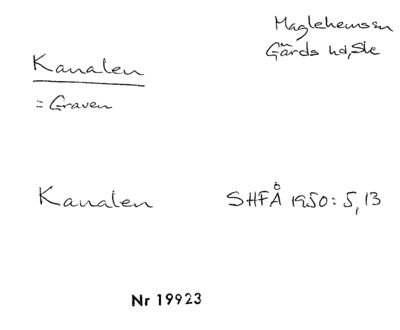 Maglehems sn
Gärds hd, Sk
Kanalen
= Graven
Kanalen SHFÅ 1950: 5, 13
Nr 19923